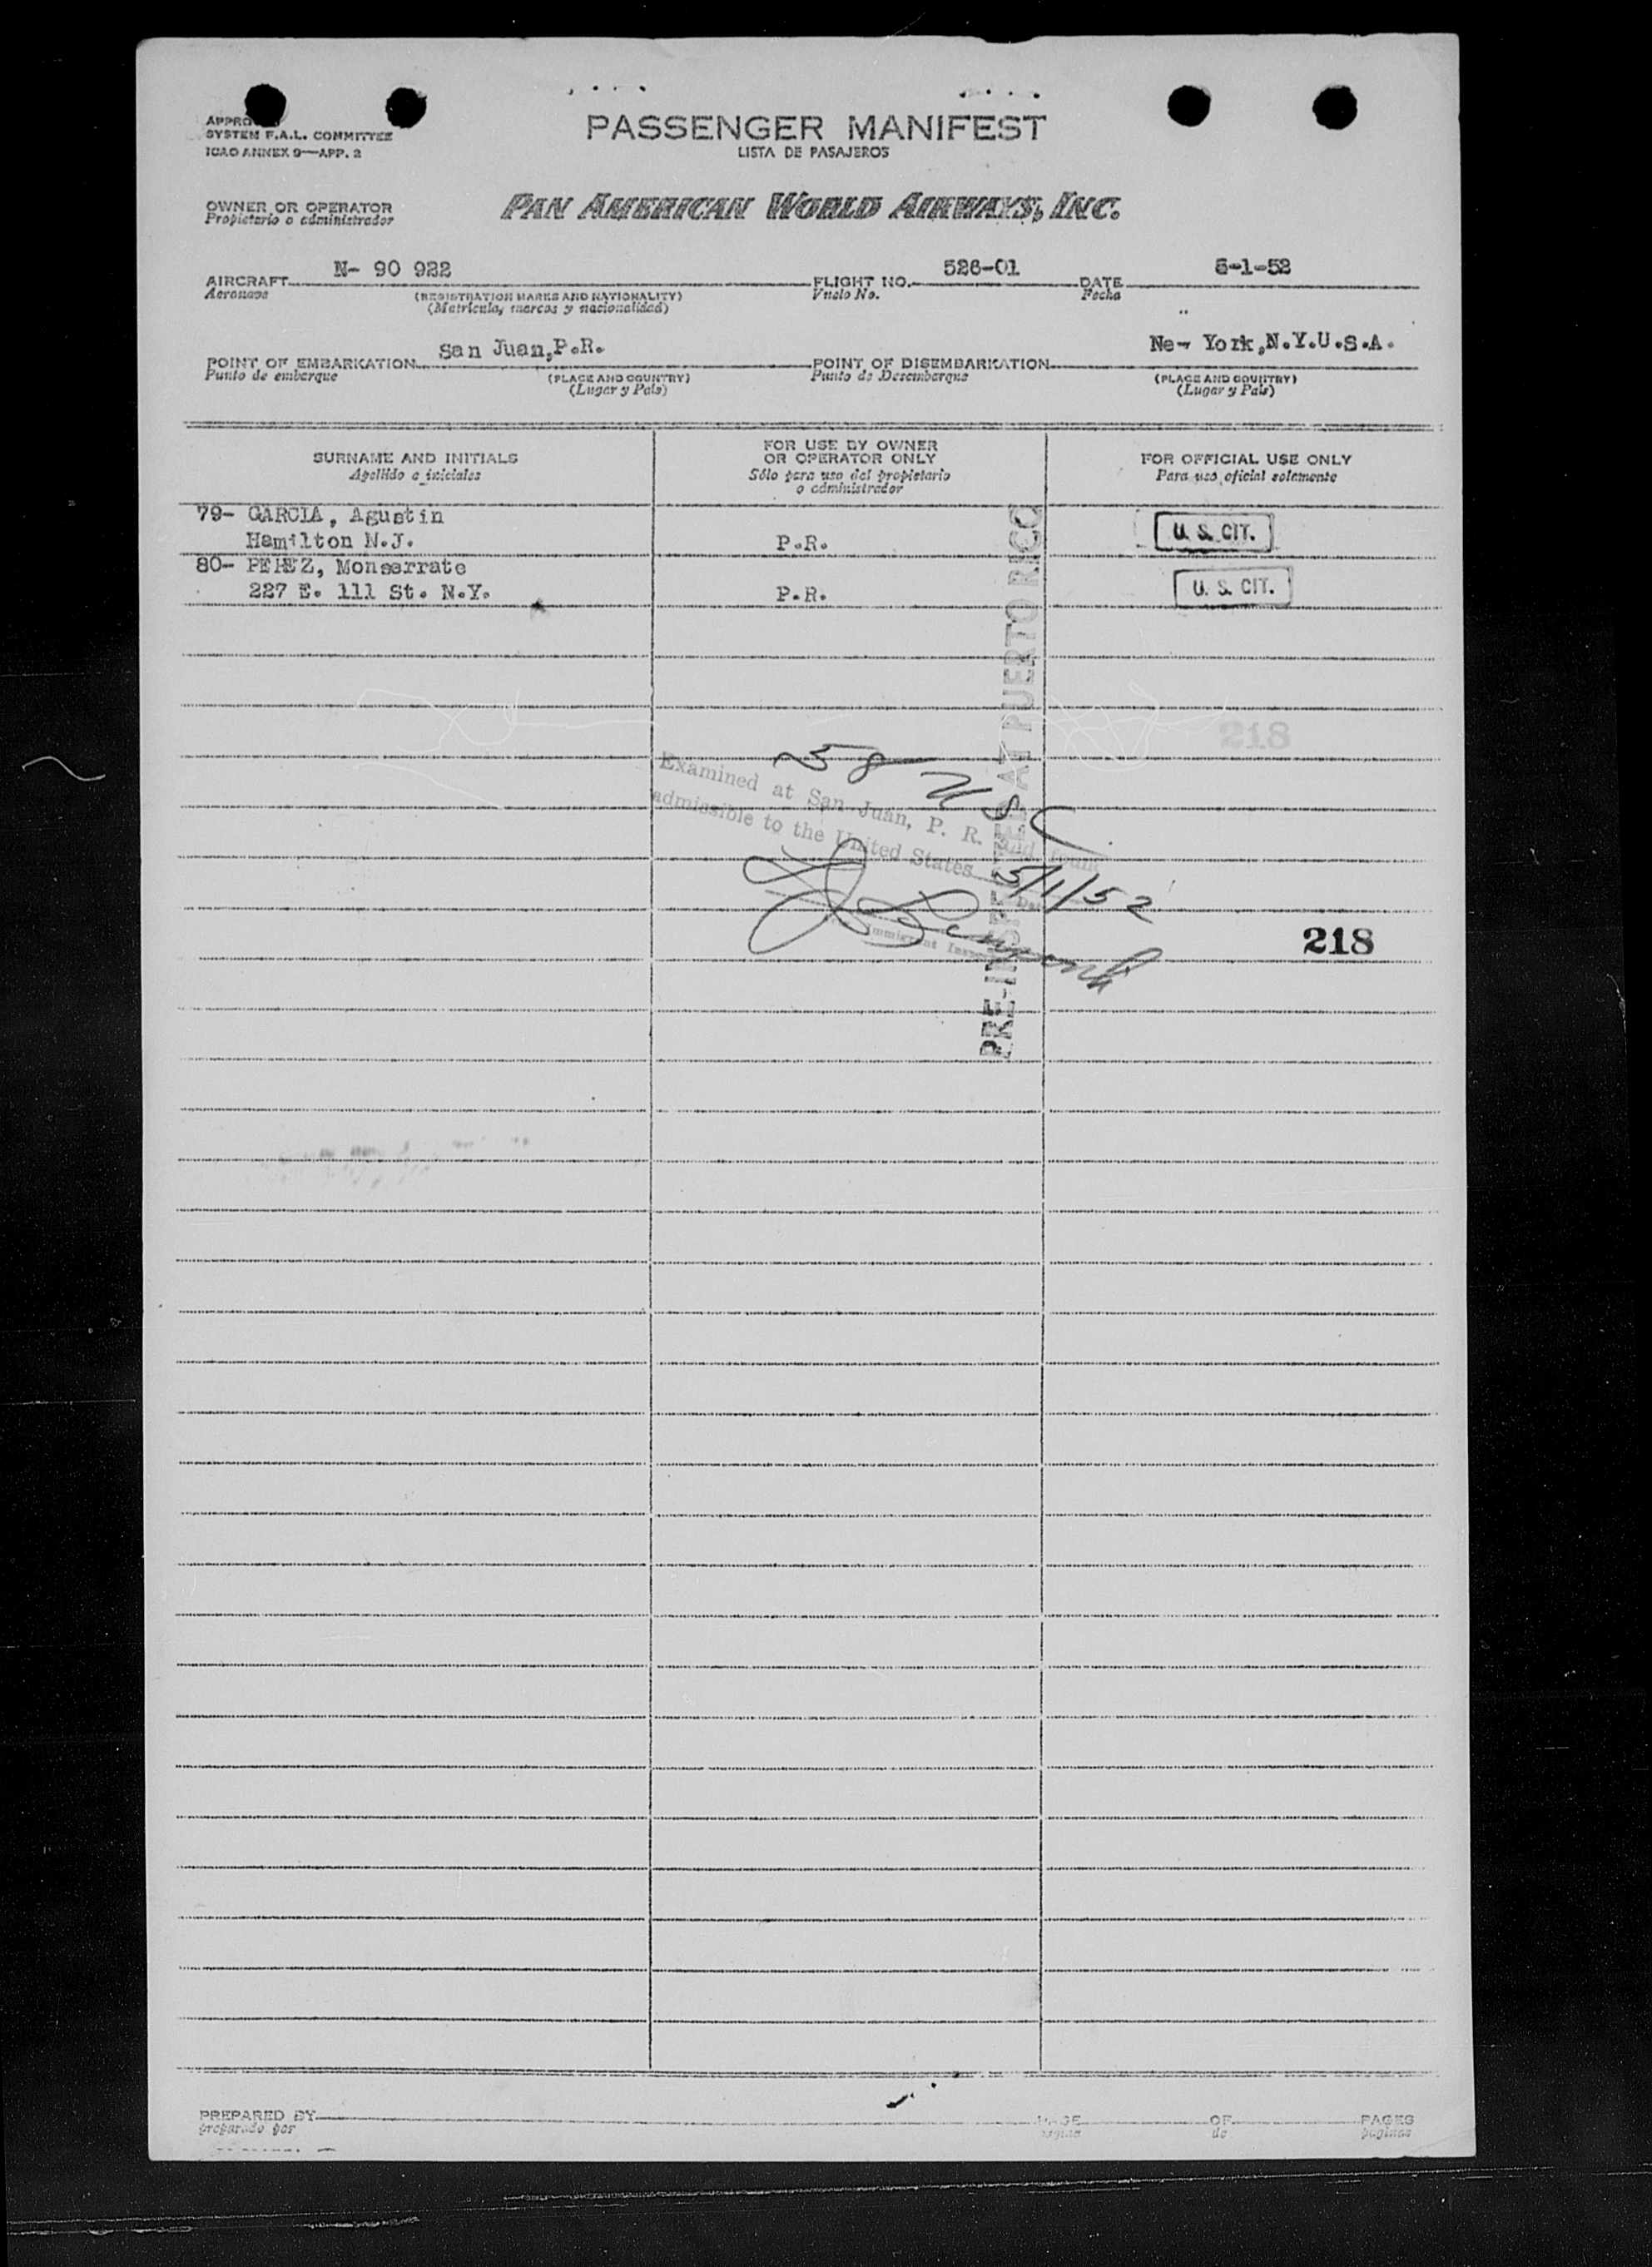 APPRO
SYSTEM F.A.L. COMMITTEE
ICAO ANNEX 9—APP. 2
PASSENGER MANIFEST
LISTA DE PASAJEROS
OWNER OR OPERATOR
Propietario o administrador
PAN AMERICAN WORLD AIRWAYS, INC.
AIRCRAFT N- 90 922 FLIGHT NO. 526-01 DATE 5-1-52
Aeronave (REGISTRATION MARKS AND NATIONALITY) Vuelo No. Fecha
(Matricula, marcas y nacionalidad)
POINT OF EMBARKATION San Juan,P.R. POINT OF DISEMBARKATION New York,N.Y.U.S.A.
Punto de embarque (PLACE AND COUNTRY) Punto de Desembarque (PLACE AND COUNTRY)
(Lugar y País) (Lugar y País)
SURNAME AND INITIALS
Apellido e iniciales
FOR USE BY OWNER
OR OPERATOR ONLY
Sólo para uso del propietario
o administrador
FOR OFFICIAL USE ONLY
Para uso oficial solamente
79- GARCIA, Agustin
Hamilton N.J. P.R. U. S. CIT.
80- PEREZ, Monserrate
227 E. 111 St. N.Y. P.R. U. S. CIT.
218
58 USC
Examined at San Juan, P. R. and found
admissible to the United States
5/1/52
Immigrant
PRE-INSPECTED AT PUERTO RICO
218
PREPARED BY PAGE OF PAGES
preparado por página de páginas